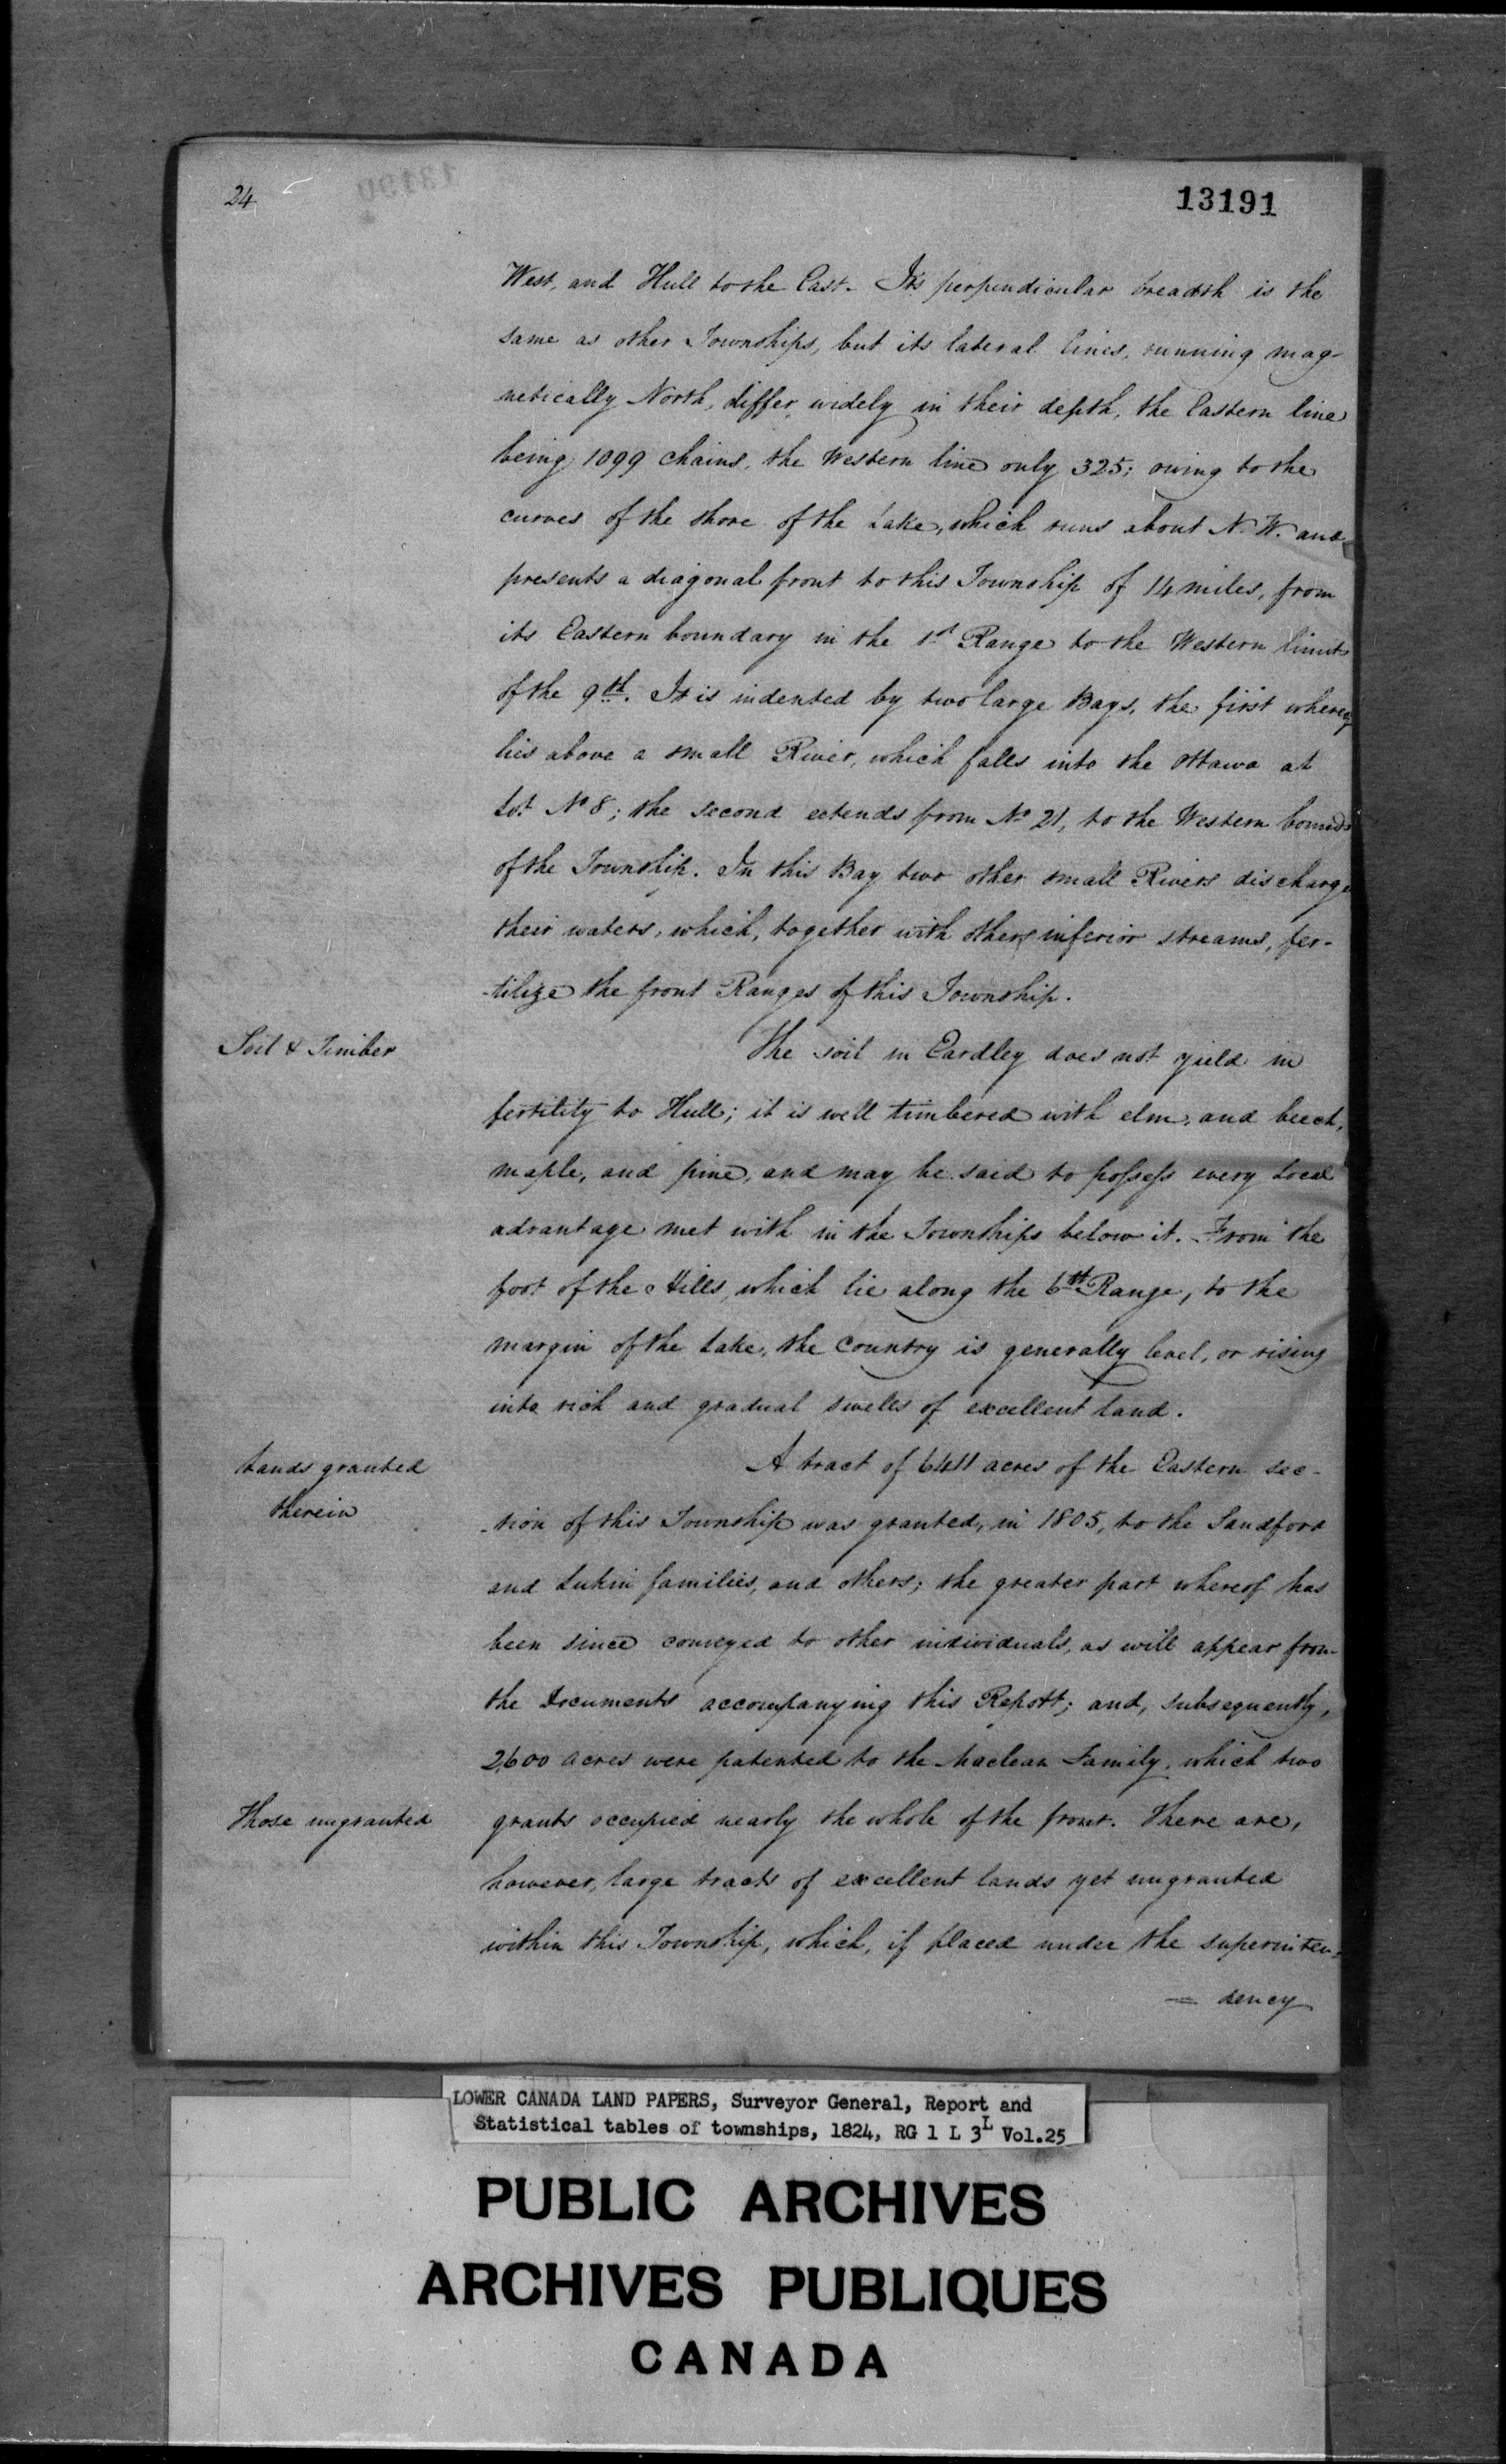 24
13191
West, and Hull to the East. Its perpendicular breadth is the
same as other Townships, but its lateral lines, running mag-
netically North, differ widely in their depth, the Eastern line
being 1099 chains, the Western line only 325; owing to the
curves of the shore of the Lake, which runs about N. W. and
presents a diagonal front to this Township of 14 miles, from
its Eastern boundary in the 1st Range to the Western limits
of the 9th. It is indented by two large Bays, the first whereof
lies above a small River, which falls into the Ottawa at
Lot No 8; the second extends from No 21, to the Western bounds
of the Township. In this Bay two other small Rivers discharge
their waters, which, together with others inferior streams, fer-
-tilize the front Ranges of this Township.
Soil & Timber
The soil in Eardley does not yield in
fertility to Hull; it is well timbered with elm, and beech,
maple, and pine, and may be said to possess every local
advantage met with in the Townships below it. From the
foot of the Hills, which lie along the 6th Range, to the
margin of the Lake, the Country is generally level, or rising
into rich and gradual swells of excellent land.
Lands granted
therein
A tract of 6411 acres of the Eastern sec-
-tion of this Township was granted, in 1805, to the Sandford
and Lukin families, and others; the greater part whereof has
been since conveyed to other individuals, as will appear from
the Documents accompanying this Report; and, subsequently,
2,600 acres were patented to the Maclean Family, which two
Those ungranted
grants occupied nearly the whole of the front. There are,
however, large tracts of excellent lands yet ungranted
within this Township, which, if placed under the superinten-
= dency
LOWER CANADA LAND PAPERS, Surveyor General, Report and
Statistical tables of townships, 1824, RG 1 L 3L Vol.25
PUBLIC ARCHIVES
ARCHIVES PUBLIQUES
CANADA